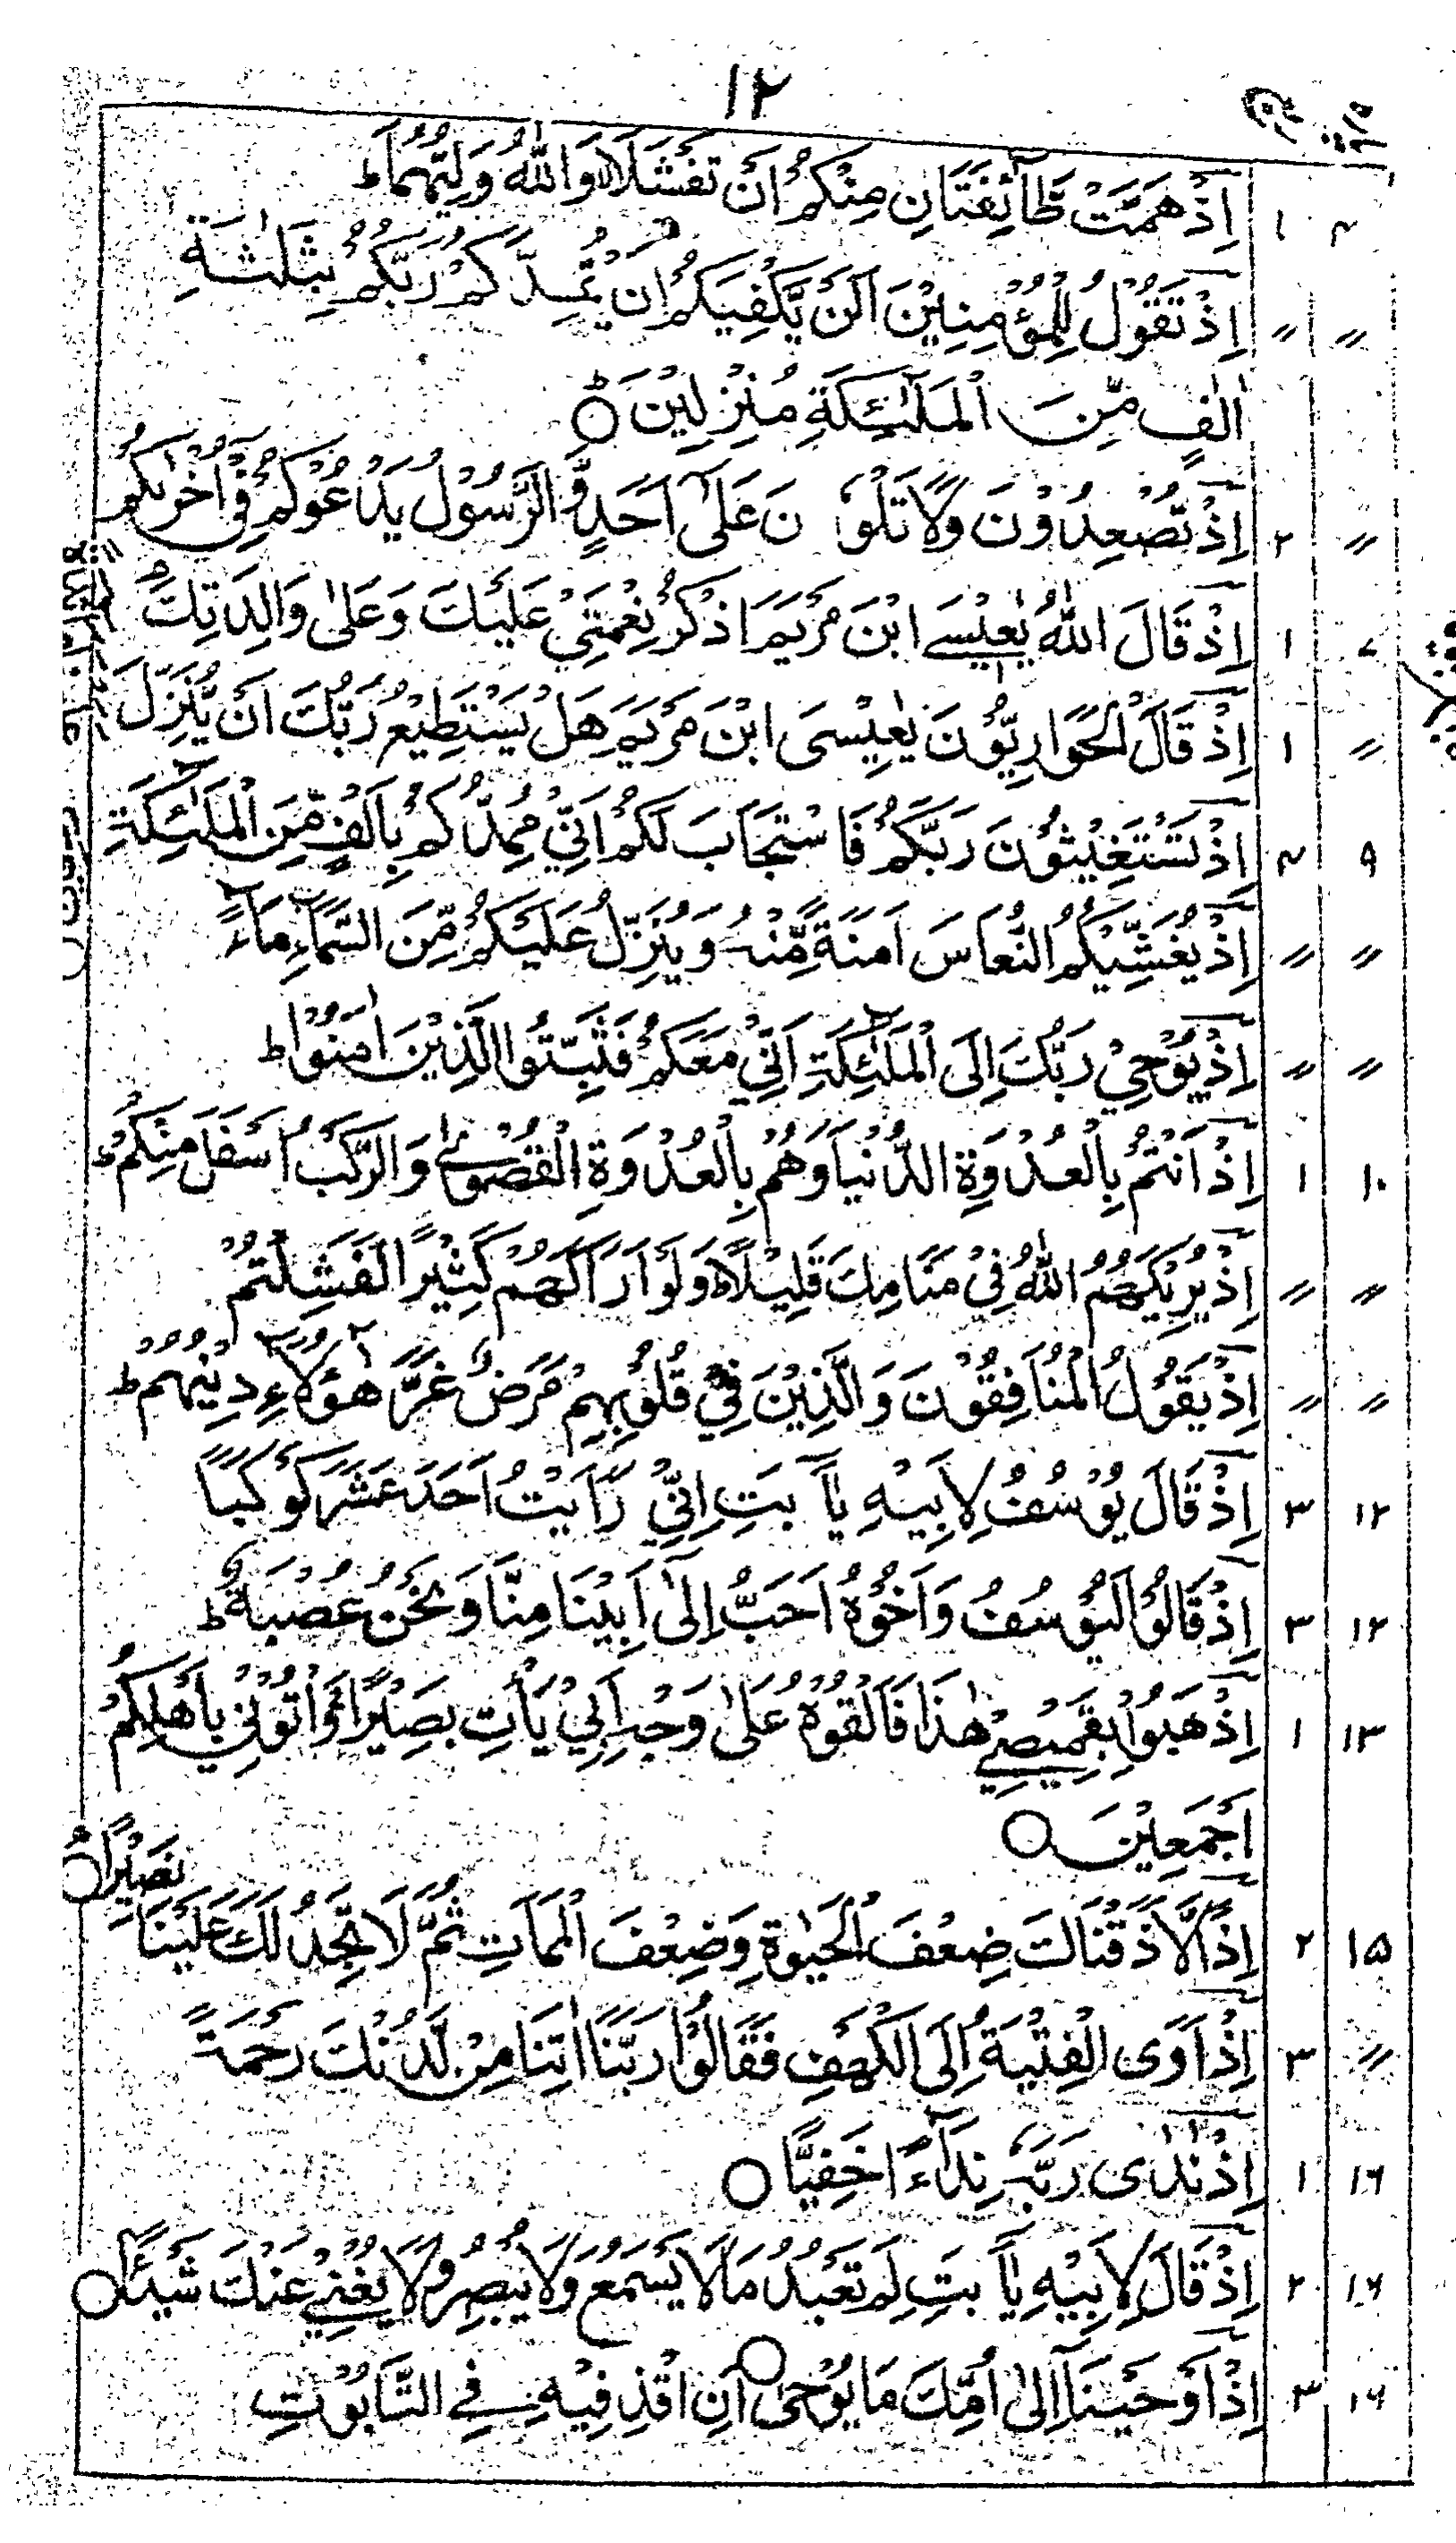 ۱۲
۴ ۱ اِذْ هَمَّتْ طَّآئِفَتَانِ مِنْكُمْ اَنْ تَفْشَلَا وَاللّٰهُ وَلِيُّهُمَا ط
〃 〃 اِذْ تَقُوْلُ لِلْمُؤْمِنِيْنَ اَلَنْ يَّكْفِيَكُمْ اَنْ يُّمِدَّكُمْ رَبُّكُمْ بِثَلٰثَةِ
اٰلٰفٍ مِّنَ الْمَلٰٓئِكَةِ مُنْزَلِيْنَ ○
〃 ۲ اِذْ تُصْعِدُوْنَ وَلَا تَلْوٗنَ عَلٰٓى اَحَدٍ وَّالرَّسُوْلُ يَدْعُوْكُمْ فِيْٓ اُخْرٰىكُمْ
۷ ۱ اِذْ قَالَ اللّٰهُ يٰعِيْسَے ابْنَ مَرْيَمَ اذْكُرْ نِعْمَتِيْ عَلَيْكَ وَعَلٰى وَالِدَتِكَ
〃 ۱ اِذْ قَالَ الْحَوَارِيُّوْنَ يٰعِيْسَى ابْنَ مَرْيَمَ هَلْ يَسْتَطِيْعُ رَبُّكَ اَنْ يُّنَزِّلَ
۹ ۴ اِذْ تَسْتَغِيْثُوْنَ رَبَّكُمْ فَاسْتَجَابَ لَكُمْ اَنِّيْ مُمِدُّكُمْ بِاَلْفٍ مِّنَ الْمَلٰٓئِكَةِ
〃 〃 اِذْ يُغَشِّيْكُمُ النُّعَاسَ اَمَنَةً مِّنْهُ وَيُنَزِّلُ عَلَيْكُمْ مِّنَ السَّمَآءِ مَآءً
〃 〃 اِذْ يُوْحِيْ رَبُّكَ اِلَى الْمَلٰٓئِكَةِ اَنِّيْ مَعَكُمْ فَثَبِّتُوا الَّذِيْنَ اٰمَنُوْا ط
۱۰ ۱ اِذْ اَنْتُمْ بِالْعُدْوَةِ الدُّنْيَا وَهُمْ بِالْعُدْوَةِ الْقُصْوٰے وَالرَّكْبُ اَسْفَلَ مِنْكُمْ ط
〃 〃 اِذْ يُرِيْكَهُمُ اللّٰهُ فِيْ مَنَامِكَ قَلِيْلًا ط وَلَوْ اَرٰىكَهُمْ كَثِيْرًا لَّفَشِلْتُمْ
〃 〃 اِذْ يَقُوْلُ الْمُنَافِقُوْنَ وَالَّذِيْنَ فِيْ قُلُوْبِهِمْ مَّرَضٌ غَرَّ هٰٓؤُلَآءِ دِيْنُهُمْ ط
۱۲ ۳ اِذْ قَالَ يُوْسُفُ لِاَبِيْهِ يٰٓاَبَتِ اِنِّيْ رَاَيْتُ اَحَدَ عَشَرَ كَوْكَبًا
۱۲ ۳ اِذْ قَالُوْا لَيُوْسُفُ وَاَخُوْهُ اَحَبُّ اِلٰٓى اَبِيْنَا مِنَّا وَنَحْنُ عُصْبَةٌ ط
۱۳ ۱ اِذْهَبُوْا بِقَمِيْصِے هٰذَا فَاَلْقُوْهُ عَلٰى وَجْهِ اَبِيْ يَاْتِ بَصِيْرًا وَاْتُوْنِيْ بِاَهْلِكُمْ
اَجْمَعِيْنَ ○
نَصِيْرًا ○
۱۵ ۲ اِذًا لَّاَذَقْنٰكَ ضِعْفَ الْحَيٰوةِ وَضِعْفَ الْمَمَاتِ ثُمَّ لَا تَجِدُ لَكَ عَلَيْنَا
〃 ۳ اِذْ اَوَى الْفِتْيَةُ اِلَى الْكَهْفِ فَقَالُوْا رَبَّنَآ اٰتِنَا مِنْ لَّدُنْكَ رَحْمَةً
۱۶ ۱ اِذْ نَادٰى رَبَّهٗ نِدَآءً خَفِيًّا ○
۱۶ ۲ اِذْ قَالَ لِاَبِيْهِ يٰٓاَبَتِ لِمَ تَعْبُدُ مَا لَا يَسْمَعُ وَلَا يُبْصِرُ وَلَا يُغْنِے عَنْكَ شَيْئًا ○
۱۶ ۳ اِذْ اَوْحَيْنَآ اِلٰٓى اُمِّكَ مَا يُوْحٰٓى ○ اَنِ اقْذِفِيْهِ فِے التَّابُوْتِ